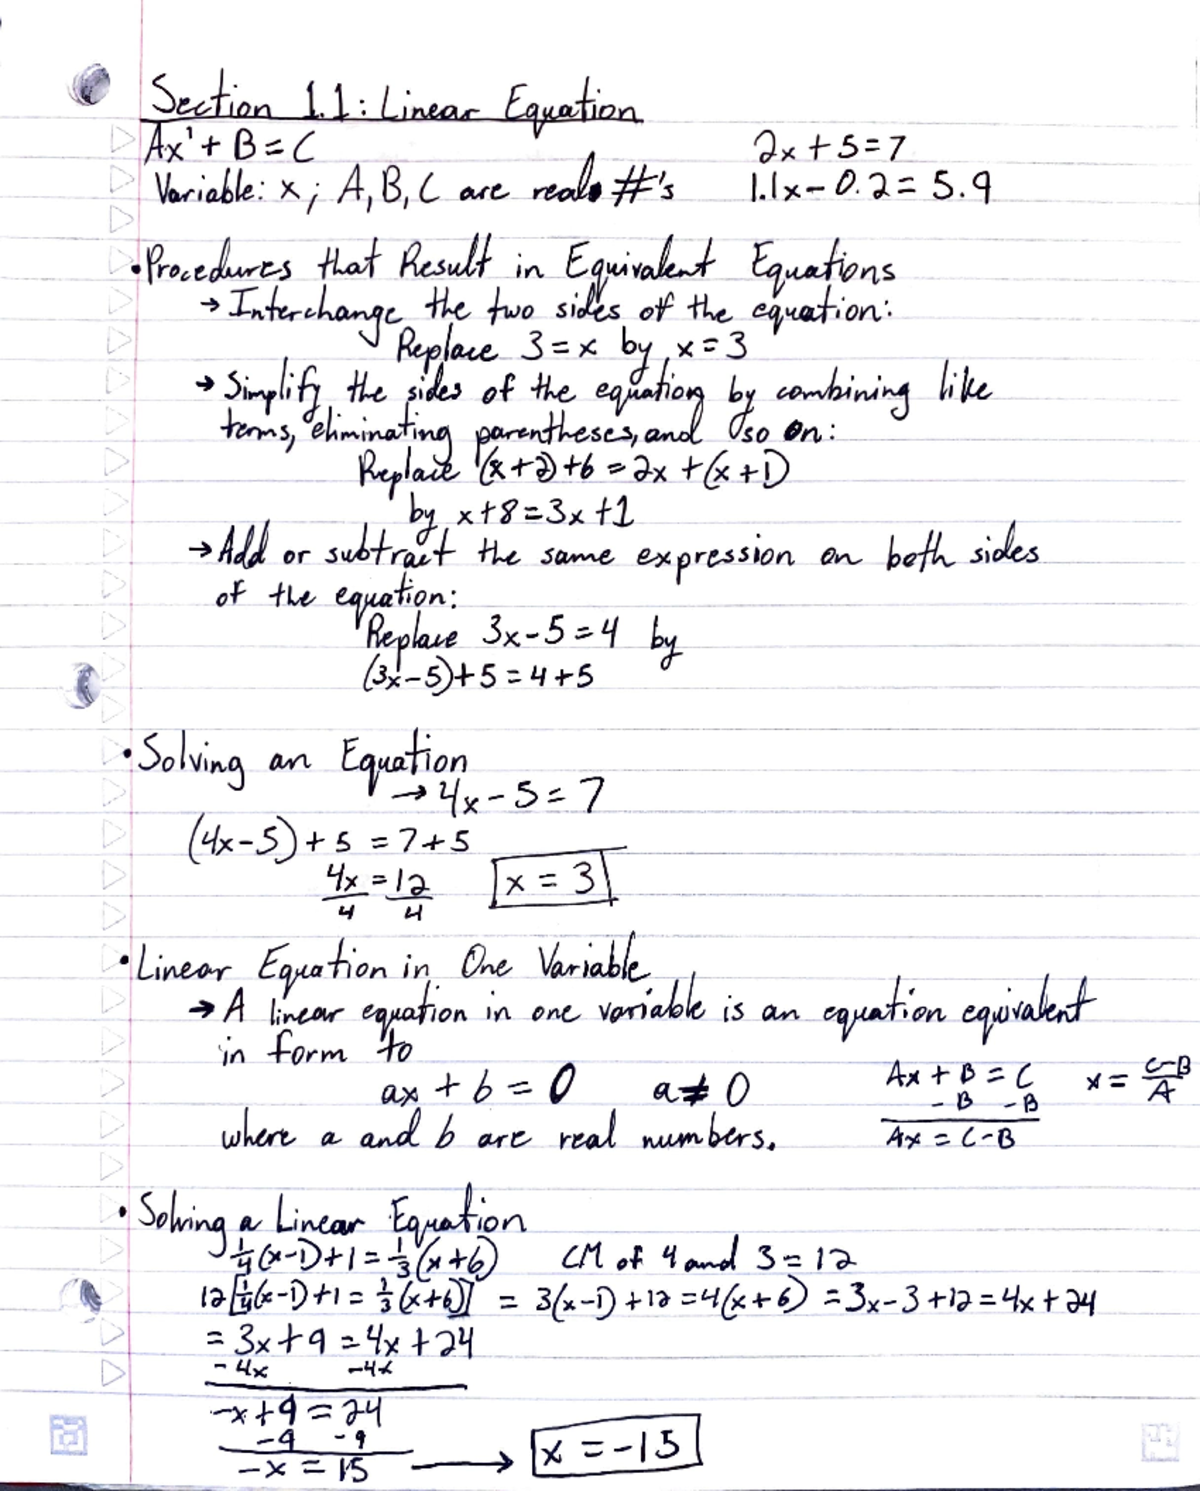 Section 1.1: Linear Equation
Ax¹ + B = C
2x + 5 = 7
Variable: x ; A, B, C are real #'s
1.1x - 0.2 = 5.9
• Procedures that Result in Equivalent Equations
→ Interchange the two sides of the equation:
Replace 3 = x by x = 3
→ Simplify the sides of the equation by combining like
terms, eliminating parentheses, and so on:
Replace (x + 2) + 6 = 2x + (x + 1)
by x + 8 = 3x + 1
→ Add or subtract the same expression on both sides
of the equation:
Replace 3x - 5 = 4 by
(3x - 5) + 5 = 4 + 5
• Solving an Equation
→ 4x - 5 = 7
(4x - 5) + 5 = 7 + 5
4x = 12
4 4
x = 3
• Linear Equation in One Variable
→ A linear equation in one variable is an equation equivalent
in form to
ax + b = 0 a ≠ 0
where a and b are real numbers.
Ax + B = C
- B - B
Ax = C - B
x = C-B/A
• Solving a Linear Equation
1/4(x-1) + 1 = 1/3(x+6) CM of 4 and 3 = 12
12[1/4(x-1) + 1 = 1/3(x+6)] = 3(x-1) + 12 = 4(x+6) = 3x - 3 + 12 = 4x + 24
= 3x + 9 = 4x + 24
- 4x - 4x
-x + 9 = 24
- 9 - 9
-x = 15 → x = -15